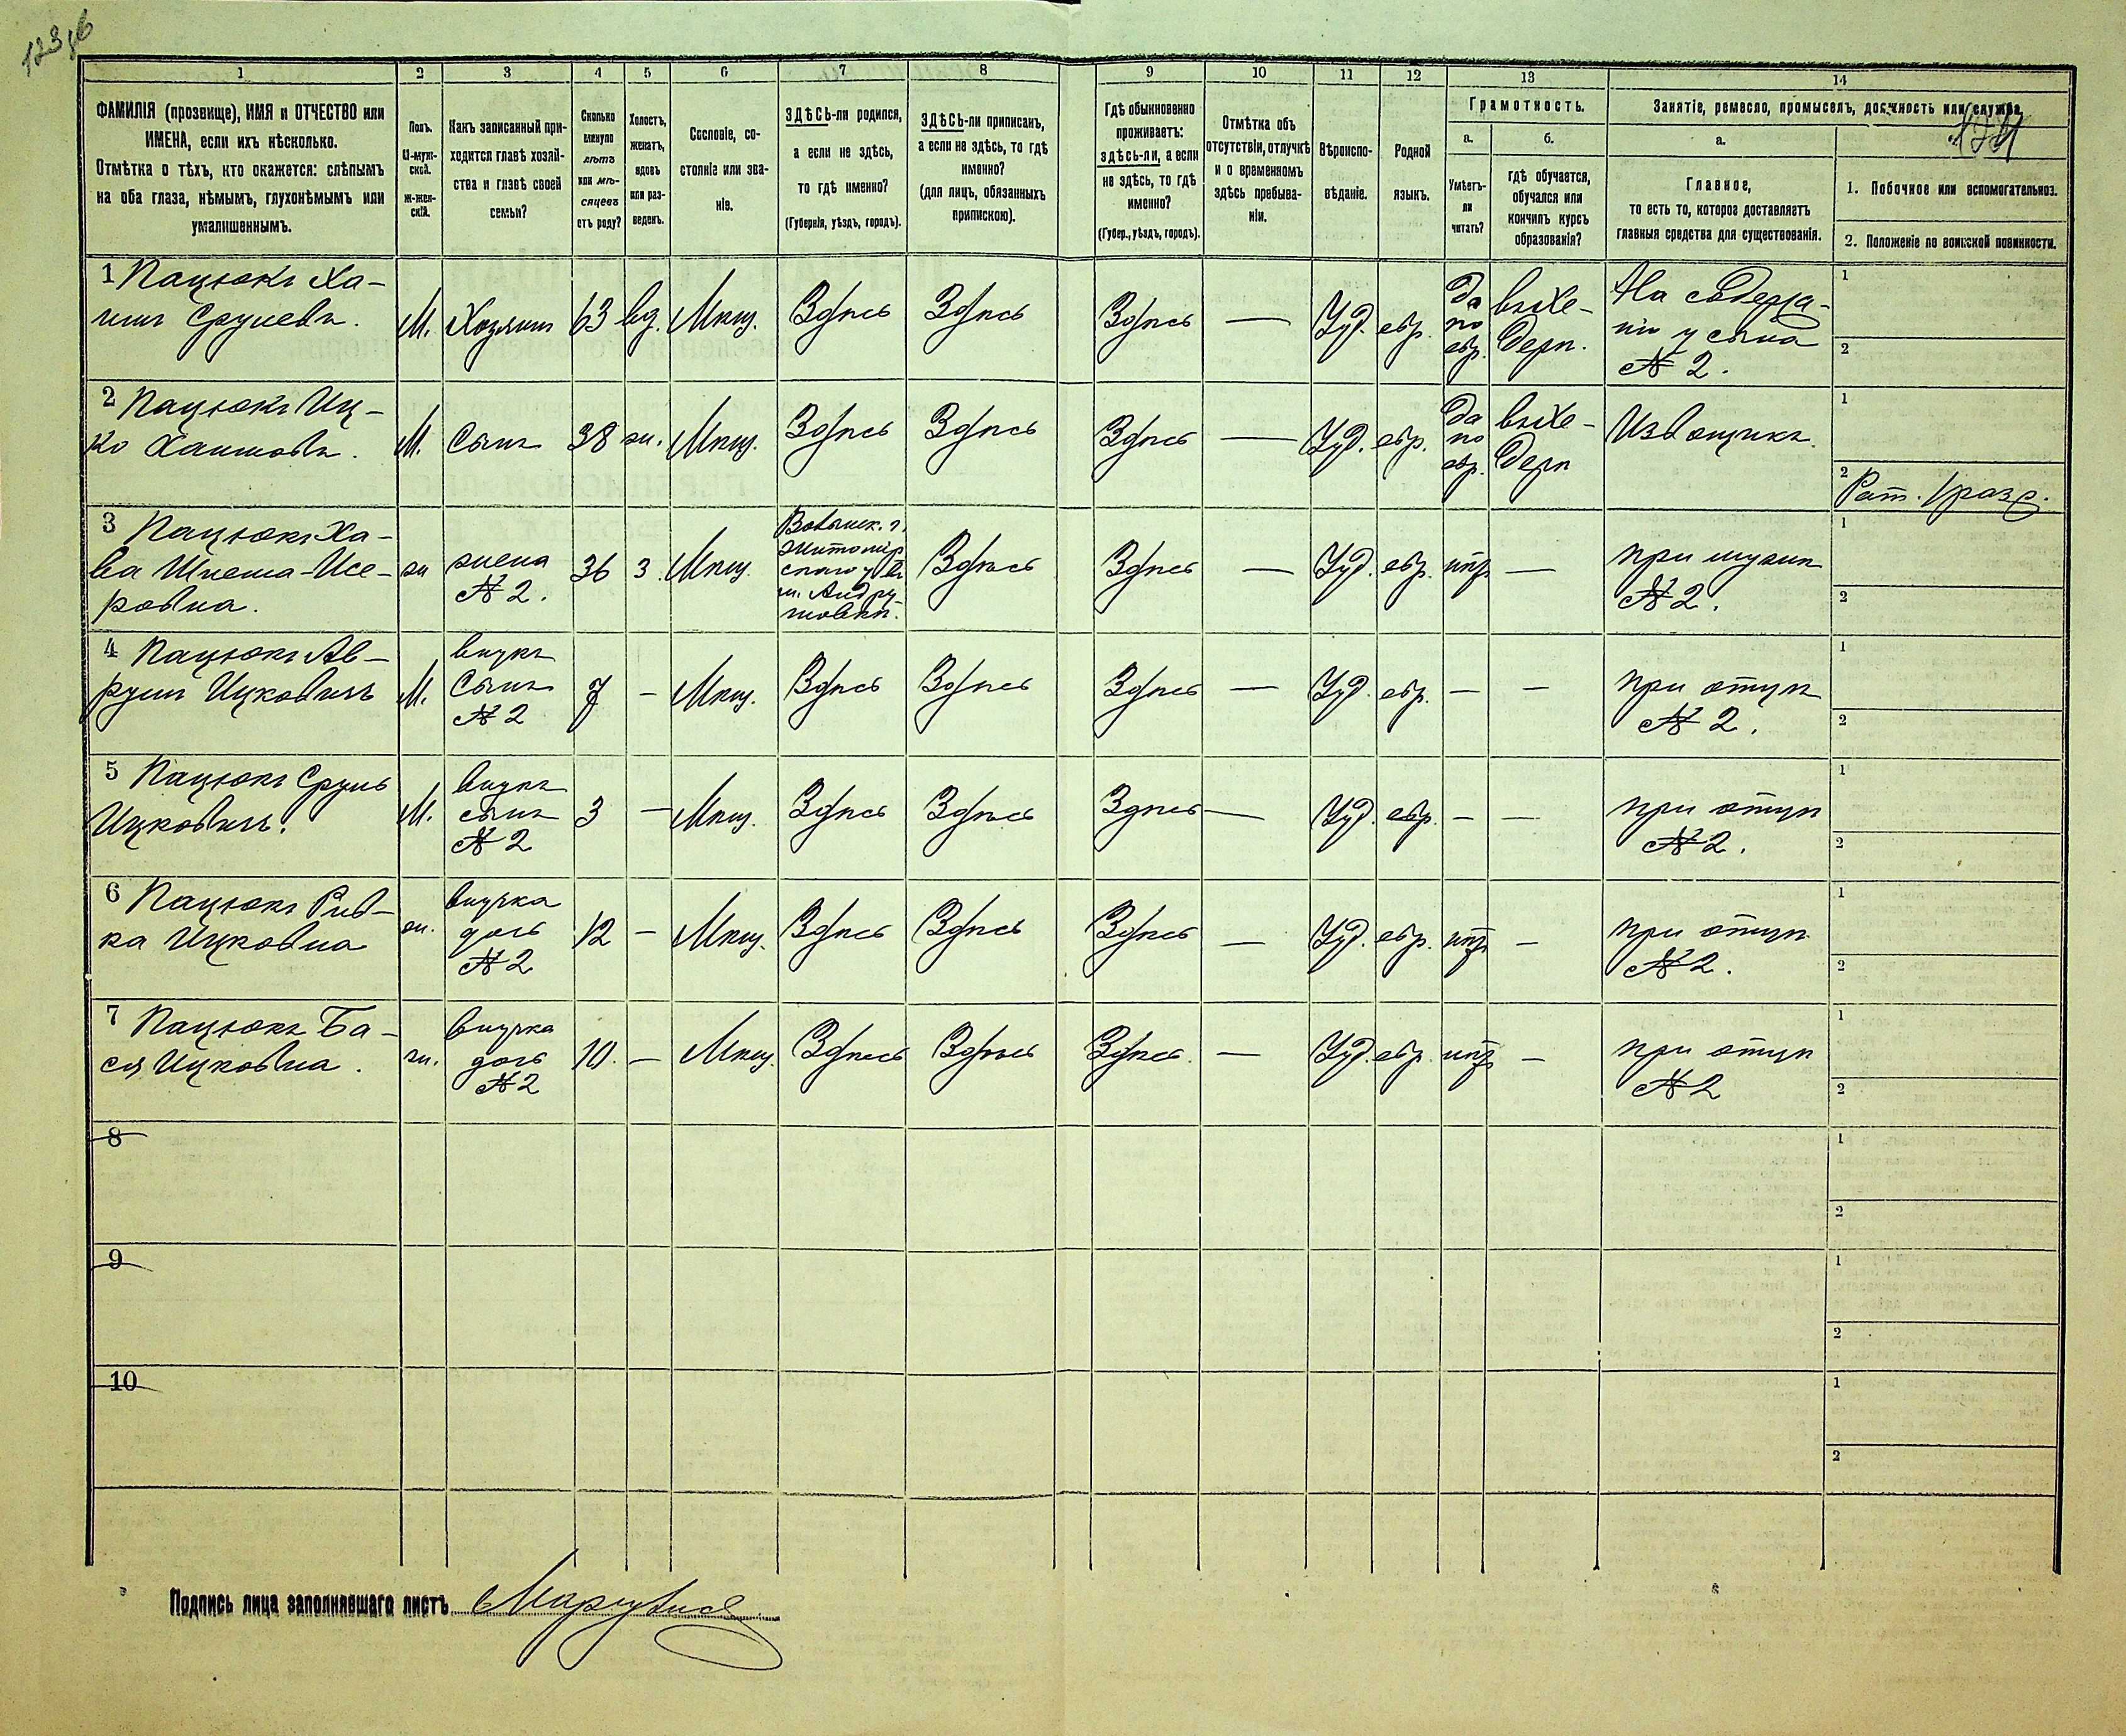 123 об
1
2
3
4
5
6
7
8
9
10
11
12
13
14
ФАМИЛІЯ (прозвище), ИМЯ и ОТЧЕСТВО или
ИМЕНА, если ихъ нѣсколько.
Отмѣтка о тѣхъ, кто окажется: слѣпымъ
на оба глаза, нѣмымъ, глухонѣмымъ или
умалишеннымъ.
Полъ.
М-муж-
ской.
Ж-жен-
скій.
Какъ записанный при-
ходится главѣ хозяй-
ства и главѣ своей
семьи?
Сколько
минуло
лѣтъ
или мѣ-
сяцевъ
отъ роду?
Холостъ,
женатъ,
вдовъ
или раз-
веденъ.
Сословіе, со-
стояніе или зва-
ніе.
ЗДѢСЬ-ли родился,
а если не здѣсь,
то гдѣ именно?
(Губернія, уѣздъ, городъ).
ЗДѢСЬ-ли приписанъ,
а если не здѣсь, то гдѣ
именно?
(для лицъ, обязанныхъ
припискою).
Гдѣ обыкновенно
проживаетъ:
здѣсь-ли, а если
не здѣсь, то гдѣ
именно?
(Губер., уѣздъ, городъ).
Отмѣтка объ
отсутствіи, отлучкѣ
и о временномъ
здѣсь пребыва-
ніи.
Вѣроиспо-
вѣданіе.
Родной
языкъ.
Грамотность.
а.
Умѣетъ-
ли
читать?
б.
гдѣ обучается,
обучался или
кончилъ курсъ
образованія?
Занятіе, ремесло, промыселъ, должность или служба.
а.
Главное,
то есть то, которое доставляетъ
главныя средства для существованія.
1. Побочное или вспомогательное.
2. Положеніе по воинской повинности.
1 Пацюкъ Ха-
имъ Срулевъ.
М.
Хозяинъ
63
вд.
Мѣщ.
Здѣсь
Здѣсь
Здѣсь
—
Іуд.
евр.
Да
по
евр.
въ Хе-
дерѣ.
На содержа-
ніи у сына
№ 2.
1
2
2 Пацюкъ Иц-
ко Хаимовъ.
М.
Сынъ
38
ж.
Мѣщ.
Здѣсь
Здѣсь
Здѣсь
—
Іуд.
евр.
Да
по
евр.
въ Хе-
дерѣ
Извощикъ.
1
2
Рат. 1 разр.
3 Пацюкъ Ха-
ва Шнема-Исе-
ровна.
ж
жена
№ 2.
36
з.
Мѣщ.
Волынск. г.
Житомір
скаго у. въ
м. Андру
шовкѣ.
Здѣсь
Здѣсь
—
Іуд.
евр.
нѣт
—
при мужѣ
№ 2.
1
2
4 Пацюкъ Ав-
румъ Ицковичъ
М.
внукъ
Сынъ
№ 2
7
—
Мѣщ.
Здѣсь
Здѣсь
Здѣсь
—
Іуд.
евр.
—
—
при отцѣ
№ 2.
1
2
5 Пацюкъ Сруль
Ицковичъ.
М.
внукъ
сынъ
№ 2
3
—
Мѣщ.
Здѣсь
Здѣсь
Здѣсь
—
Іуд.
евр.
—
—
при отцѣ
№ 2.
1
2
6 Пацюкъ Рив-
ка Ицковна
ж.
внучка
дочь
№ 2
12
—
Мѣщ.
Здѣсь
Здѣсь
Здѣсь
—
Іуд.
евр.
нѣт
—
при отцѣ
№ 2.
1
2
7 Пацюкъ Ба-
ся Ицковна.
ж.
внучка
дочь
№ 2
10.
—
Мѣщ.
Здѣсь
Здѣсь
Здѣсь.
—
Іуд.
евр.
нѣт
—
при отцѣ
№ 2
1
2
8
1
2
9
1
2
10
1
2
Подпись лица заполнявшаго листъ